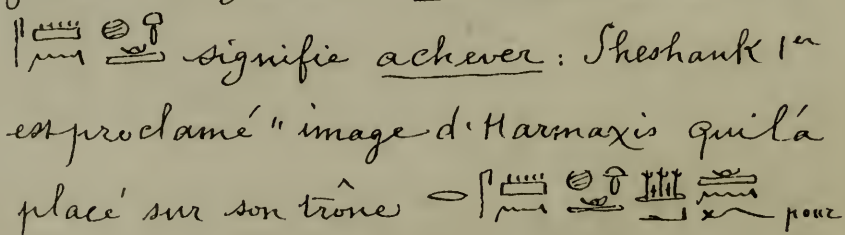 𓋴𓏠𓈖𓐍 signifie achever : Sheshank 1er
est proclamé " image d'Harmaxis qui l'a
placé sur son trône 𓂋𓋴𓏠𓈖𓐍 pour